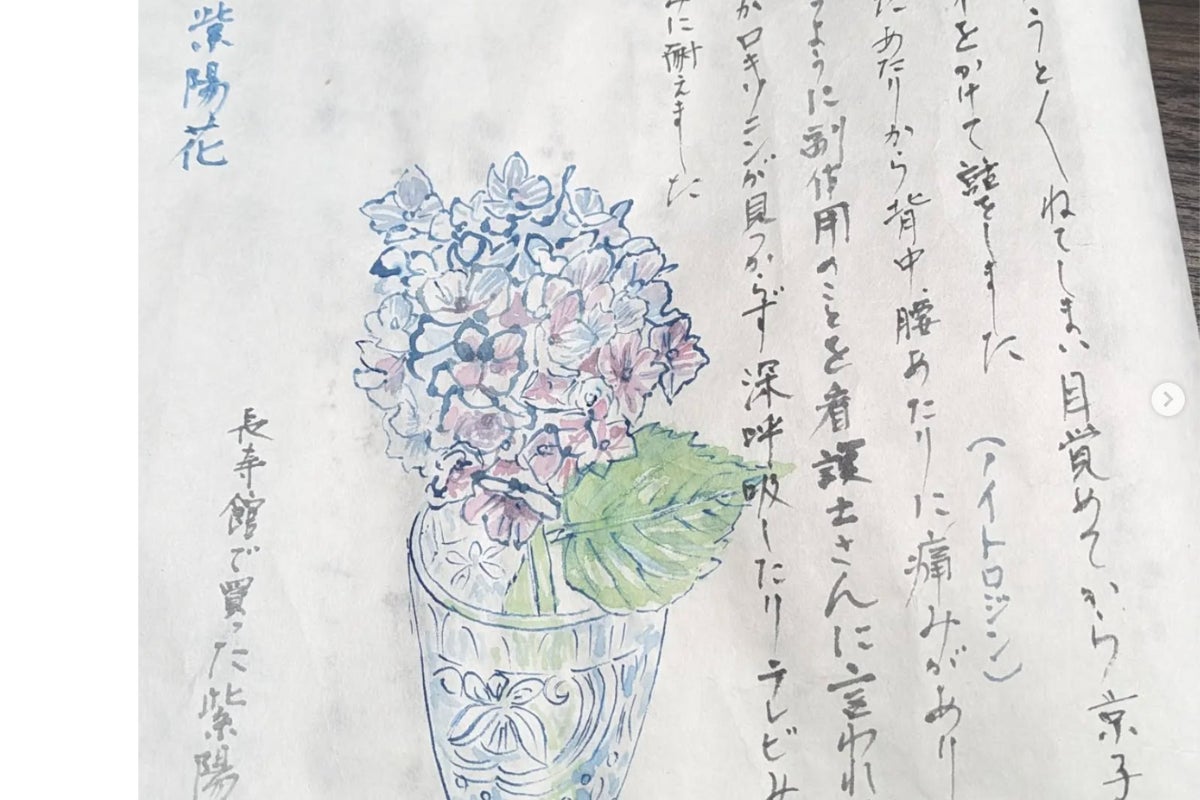 うとくねてしまい目覚めてから京子
をかけて話をしました
(アイトロジン)
あたりから背中、腰あたりに痛みがあり
ように副作用のことを看護士さんに言われ
かロキソニンが見つからず深呼吸したりテレビみ
みに耐えました
紫陽花
長寿館で買った紫陽